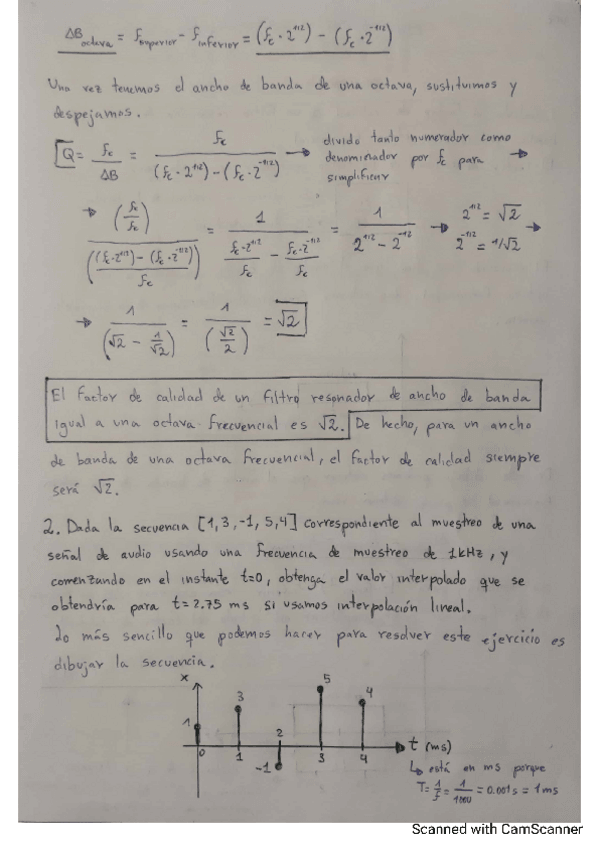 ΔB octava = f superior - f inferior = (fc · 2^1/2) - (fc · 2^-1/2)
Una vez tenemos el ancho de banda de una octava, sustituimos y
despejamos.
Q = fc / ΔB = fc / ((fc · 2^1/2) - (fc · 2^-1/2)) → divido tanto numerador como
denominador por fc para →
simplificar
→ (fc/fc) / (((fc · 2^1/2) - (fc · 2^-1/2)) / fc) = 1 / (fc · 2^1/2 / fc - fc · 2^-1/2 / fc) = 1 / (2^1/2 - 2^-1/2) → 2^1/2 = √2 →
2^-1/2 = 1/√2
→ 1 / (√2 - 1/√2) = 1 / (√2/2) = √2
El factor de calidad de un filtro resonador de ancho de banda
igual a una octava frecuencial es √2. De hecho, para un ancho
de banda de una octava frecuencial, el factor de calidad siempre
será √2.
2. Dada la secuencia [1, 3, -1, 5, 4] correspondiente al muestreo de una
señal de audio usando una frecuencia de muestreo de 1kHz, y
comenzando en el instante t=0, obtenga el valor interpolado que se
obtendría para t=2.75 ms si usamos interpolación lineal.
Lo más sencillo que podemos hacer para resolver este ejercicio es
dibujar la secuencia.
x
5
3
4
1
2
-1
0 1 3 4
t (ms)
↳ está en ms porque
T = 1/f = 1/1000 = 0.001 s = 1 ms
Scanned with CamScanner